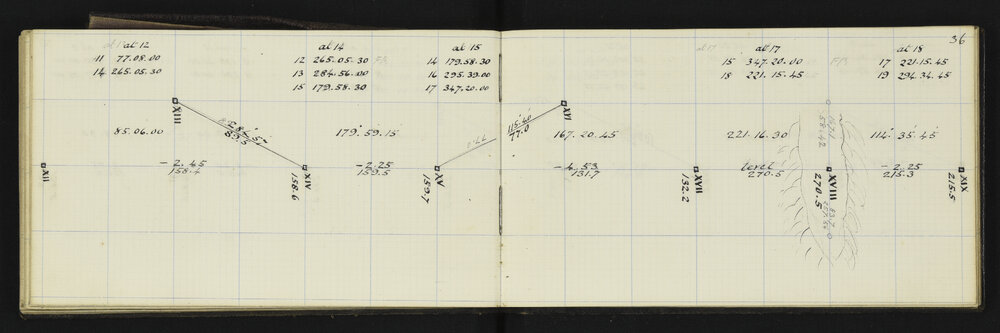 36
at 12
11 77.08.00
14 265.05.30
at 14
12 265.05.30
13 284.56.00
15 179.58.30
at 15
14 179.58.30
16 295.39.00
17 347.20.00
at 17
15 347.20.00
18 221.15.45
at 18
17 221.15.45
19 294.34.45
XIII
XVI
85.06.00
179.59.15
115.40
77.0
167.20.45
221.16.30
114.35.45
XII
-2.45
158.4
XIV
158.6
-2.25
159.5
XV
159.7
-4.53
131.7
XVII
132.2
level
270.5
XVIII
270.5
-2.25
215.3
XIX
215.5